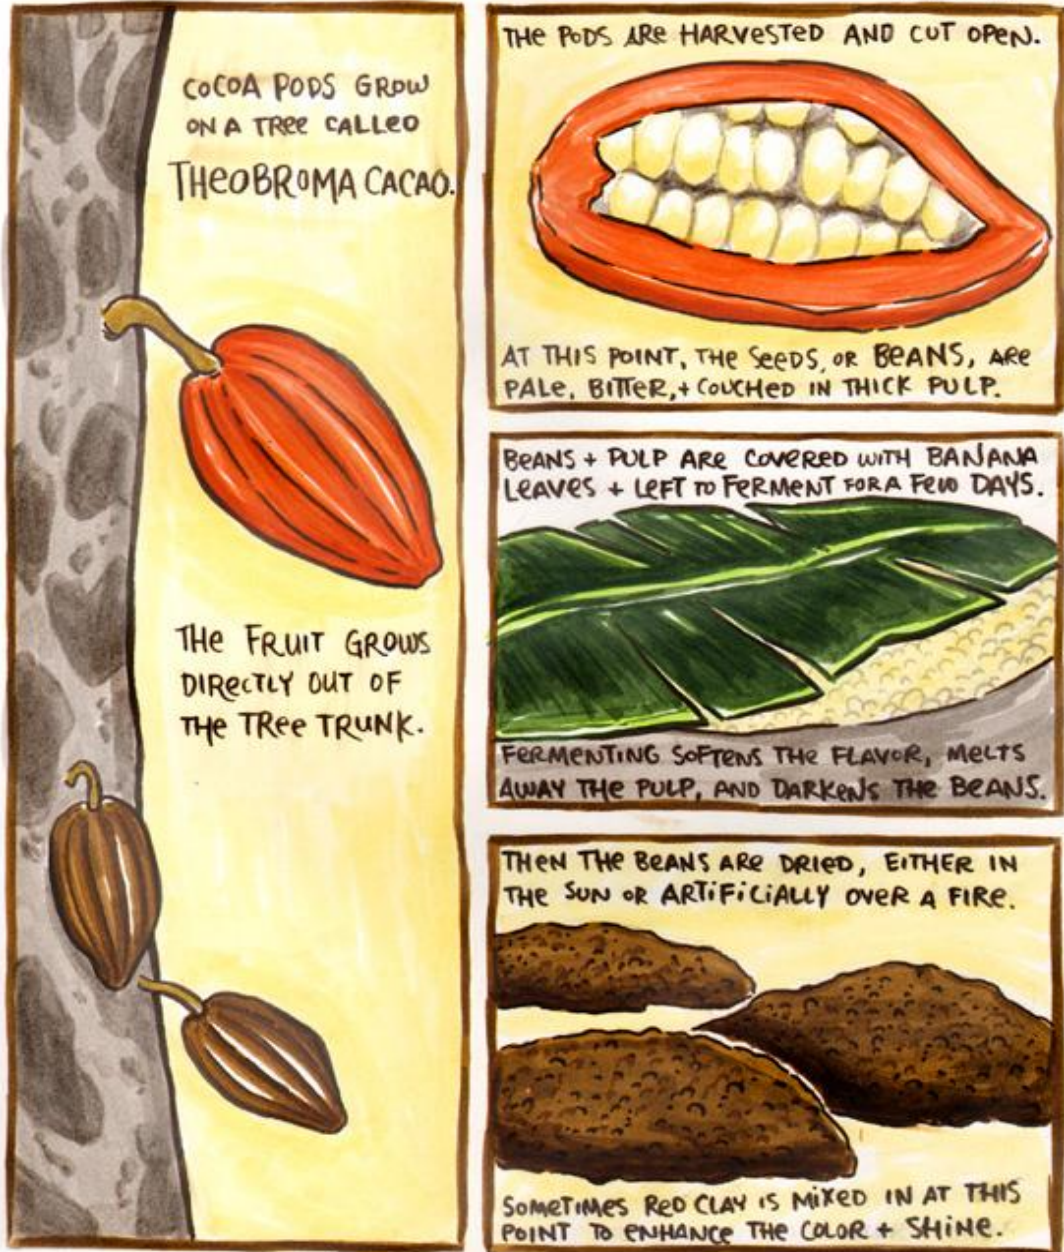 COCOA PODS GROW
ON A TREE CALLED
THEOBROMA CACAO.
THE FRUIT GROWS
DIRECTLY OUT OF
THE TREE TRUNK.
THE PODS ARE HARVESTED AND CUT OPEN.
AT THIS POINT, THE SEEDS, OR BEANS, ARE
PALE, BITTER, + COUCHED IN THICK PULP.
BEANS + PULP ARE COVERED WITH BANANA
LEAVES + LEFT TO FERMENT FOR A FEW DAYS.
FERMENTING SOFTENS THE FLAVOR, MELTS
AWAY THE PULP, AND DARKENS THE BEANS.
THEN THE BEANS ARE DRIED, EITHER IN
THE SUN OR ARTIFICIALLY OVER A FIRE.
SOMETIMES RED CLAY IS MIXED IN AT THIS
POINT TO ENHANCE THE COLOR + SHINE.